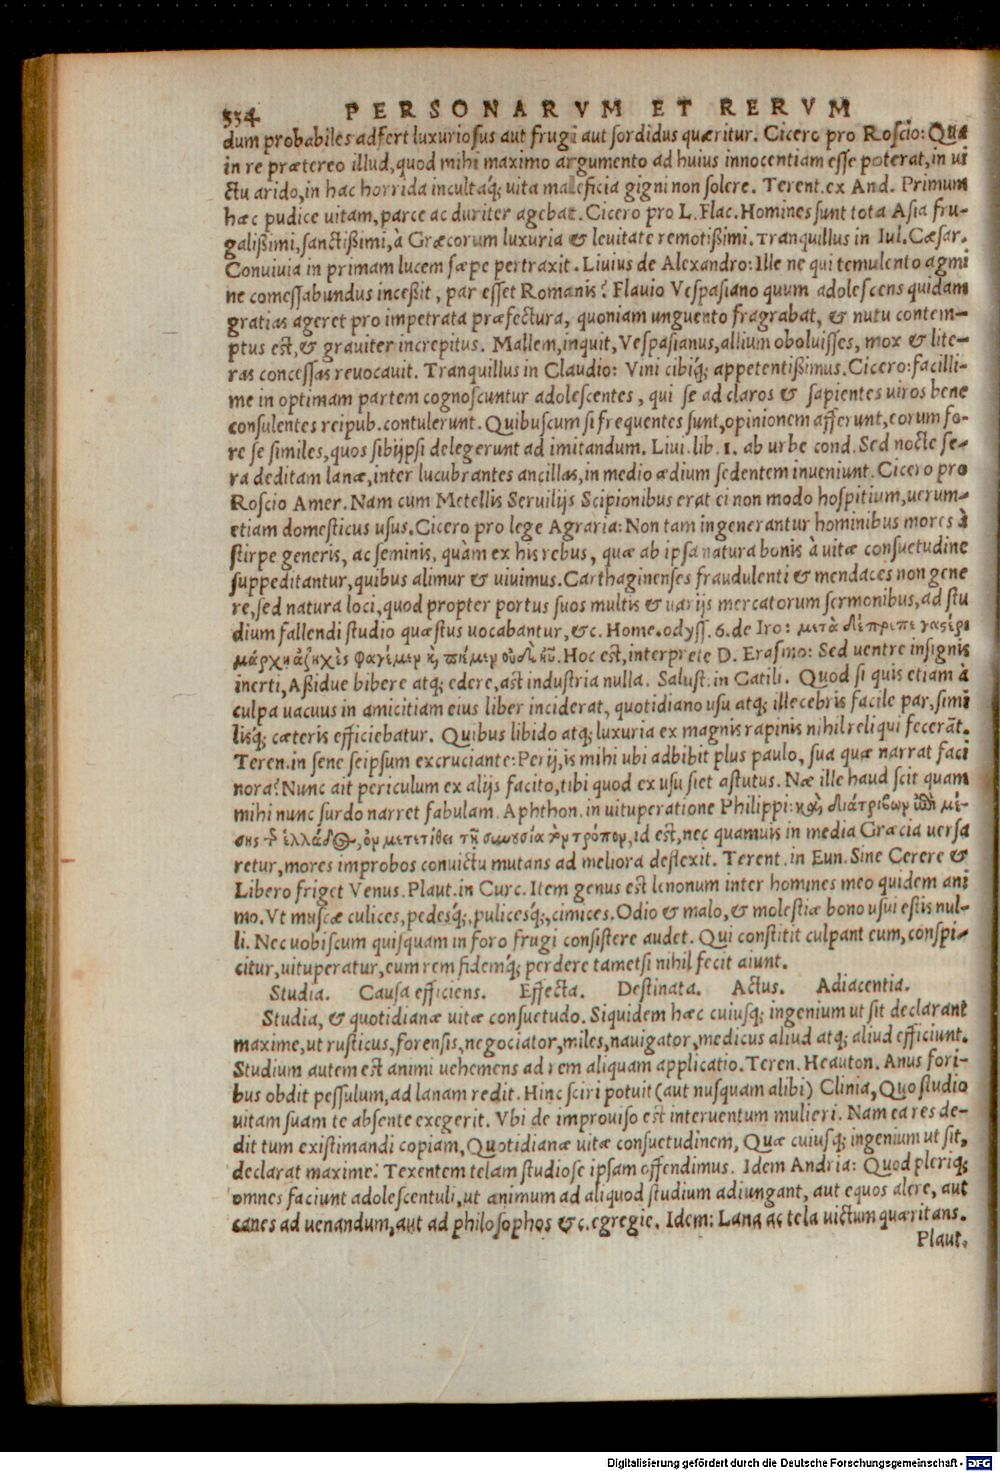 334 PERSONARVM ET RERVM
dum probabiles adfert luxuriosus aut frugi aut sordidus quæritur. Cicero pro Roscio: Qua
in re prætereo illud, quod mihi maximo argumento ad huius innocentiam esse poterat, in ui
ctu arido, in hac horrida incultaq́; uita maleficia gigni non solere. Terent. ex And. Primum
hæc pudice uitam, parce ac duriter agebat. Cicero pro L. Flac. Homines sunt tota Asia fru-
galißimi, sanctißimi, à Græcorum luxuria & leuitate remotißimi. Tranquillus in Iul. Cæsar.
Conuiuia in primam lucem sæpe pertraxit. Liuius de Alexandro: Ille ne qui temulento agmi
ne comessabundus inceßit, par esset Romanis? Flauio Vespasiano quum adolescens quidam
gratias ageret pro impetrata præfectura, quoniam unguento fragrabat, & nutu contem-
ptus est, & grauiter increpitus. Mallem, inquit, Vespasianus, allium oboluisses, mox & lite-
ras concessas reuocauit. Tranquillus in Claudio: Vini cibiq́; appetentißimus. Cicero: facilli-
me in optimam partem cognoscuntur adolescentes, qui se ad claros & sapientes uiros bene
consulentes reipub. contulerunt. Quibuscum si frequentes sunt, opinionem afferunt, eorum fo-
re se similes, quos sibijpsi delegerunt ad imitandum. Liui. lib. 1. ab urbe cond. Sed nocte se-
ra deditam lanæ, inter lucubrantes ancillas, in medio ædium sedentem inueniunt. Cicero pro
Roscio Amer. Nam cum Metellis Seruilijs Scipionibus erat ei non modo hospitium, uerum-
etiam domesticus usus. Cicero pro lege Agraria: Non tam ingenerantur hominibus mores à
stirpe generis, ac seminis, quàm ex his rebus, quæ ab ipsa natura bonis à uitæ consuetudine
suppeditantur, quibus alimur & uiuimus. Carthaginenses fraudulenti & mendaces non gene
re, sed natura loci, quod propter portus suos multis & uarijs mercatorum sermonibus, ad stu
dium fallendi studio quæstus uocabantur, &c. Home. odyss. 6. de Iro: μετὰ δ̓ἔπρεπε γαςέρι
μάργῃ ἀζηχὲς φαγέμεν κỳ πιέμεν οὐδέ. Hoc est, interprete D. Erasmo: Sed uentre insignis
inerti, Aßidue bibere atq; edere, ast industria nulla. Salust. in Catili. Quod si quis etiam à
culpa uacuus in amicitiam eius liber inciderat, quotidiano usu atq; illecebris facile par, simi
lisq́; cæteris efficiebatur. Quibus libido atq; luxuria ex magnis rapinis nihil reliqui fecerãt.
Teren. in sene seipsum excruciante: Perij, is mihi ubi adbibit plus paulo, sua quæ narrat faci
nora? Nunc ait periculum ex alijs facito, tibi quod ex usu siet astutus. Næ ille haud scit quam
mihi nunc surdo narret fabulam. Aphthon. in uituperatione Philippi: διάτριβων μέ-
σης ἑλλάδος, μετετίθει τῇ συνουσίᾳ τὸν τρόπον, id est, nec quamuis in media Græcia uersa
retur, mores improbos conuictu mutans ad meliora deflexit. Terent. in Eun. Sine Cerere &
Libero friget Venus. Plaut. in Curc. Item genus est lenonum inter homines meo quidem ani
mo. Vt muscæ culices, pedesq́;, pulicesq́;, cimices. Odio & malo, & molestiæ bono usui estis nul-
li. Nec uobiscum quisquam in foro frugi consistere audet. Qui constitit culpant eum, conspi-
citur, uituperatur, eum rem fidemq́; perdere tametsi nihil fecit aiunt.
Studia. Causa efficiens. Effecta. Destinata. Actus. Adiacentia.
Studia, & quotidianæ uitæ consuetudo. Siquidem hæc cuiusq; ingenium ut sit declarant
maxime, ut rusticus, forensis, negociator, miles, nauigator, medicus aliud atq; aliud efficiunt.
Studium autem est animi uehemens ad rem aliquam applicatio. Teren. Heauton. Anus fori-
bus obdit pessulum, ad lanam redit. Hinc sciri potuit (aut nusquam alibi) Clinia, Quo studio
uitam suam te absente exegerit. Vbi de improuiso est interuentum mulieri. Nam ea res de-
dit tum existimandi copiam, Quotidianæ uitæ consuetudinem, Quæ cuiusq; ingenium ut sit,
declarat maxime. Texentem telam studiose ipsam offendimus. Idem Andria: Quod pleriq;
omnes faciunt adolescentuli, ut animum ad aliquod studium adiungant, aut equos alere, aut
canes ad uenandum, aut ad philosophos &c. egregie. Idem: Lana ac tela uictum quæritans.
Plaut.
Digitalisierung gefördert durch die Deutsche Forschungsgemeinschaft - DFG